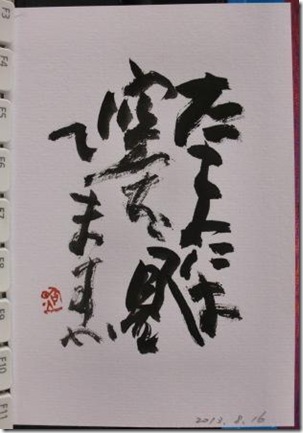 たまには
空を見
てますか
2013.8.16
F3
F4
F5
F6
F7
F8
F9
F10
F11